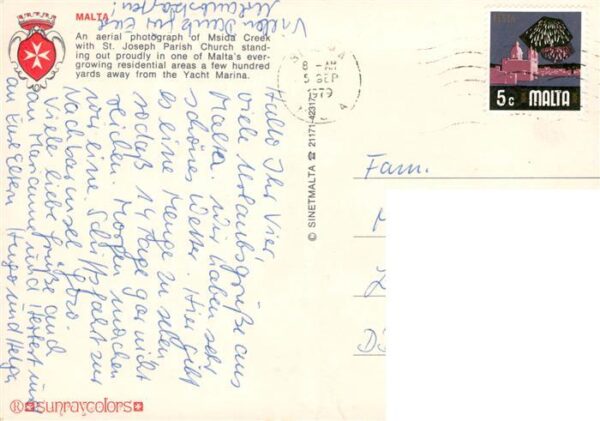 MALTA
An aerial photograph of Msida Creek
with St. Joseph Parish Church stand-
ing out proudly in one of Malta's ever-
growing residential areas a few hundred
yards away from the Yacht Marina.
Vielen Dank für Eure
Urlaubskarten!
Hallo Ihr Vier,
viele Urlaubsgrüße aus
Malta. Wir haben sehr
schönes Wetter. Hier gibt
es eine Menge zu sehen
sodaß 14 Tage gar nicht
reichen. Morgen machen
wir eine Schiffsfahrt zur
Nachbarinsel Gozo.
Viele liebe Grüße auch
an Marianne und Herbert und
an Eure Eltern Hugo und Helga
© SINETMALTA ☎ 21171-42317
8 - AM
5 SEP
1979
FESTA
5c MALTA
Fam.
M
D
® sunraycolors